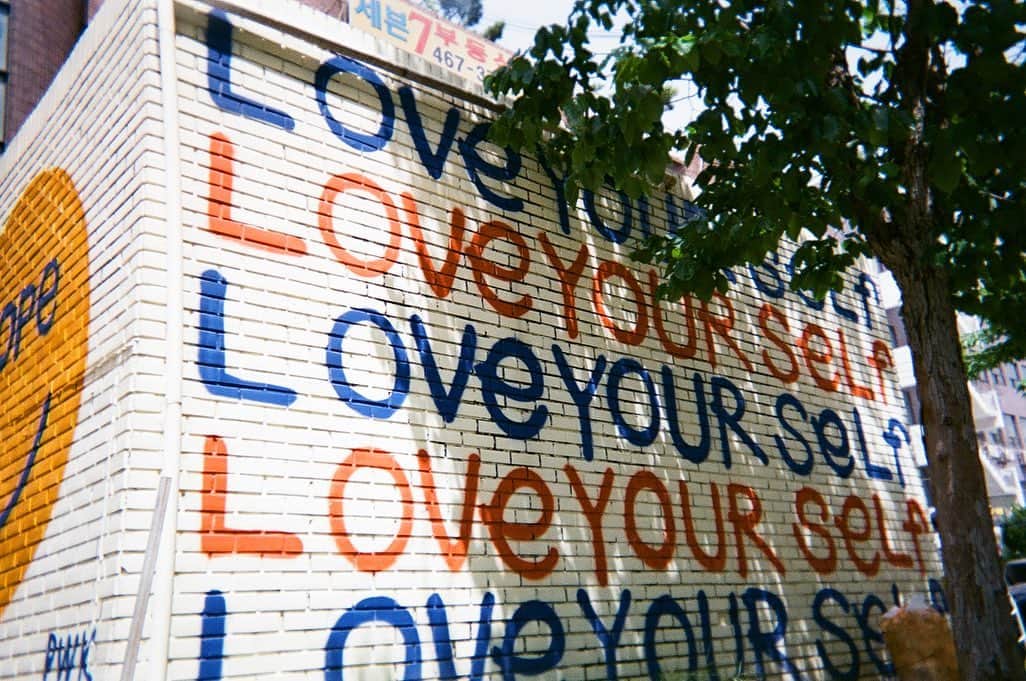 세븐7부동산
467-3
Love YOUR Self
Love YOUR Self
Love YOUR Self
Love YOUR Self
Love YOUR Sel
ope
PWK